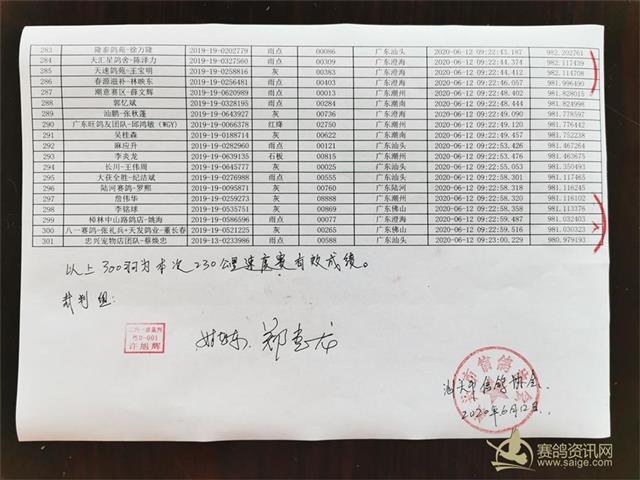 283 隆泰鸽苑-徐万隆 2019-19-0202779 雨点 00086 广东汕头 2020-06-12 09:22:43.187 982.202761
284 天汇星鸽舍-陈泽力 2019-19-0327560 雨点 00309 广东澄海 2020-06-12 09:22:44.374 982.117439
285 天速鸽苑-王宝明 2019-19-0258816 灰 00383 广东澄海 2020-06-12 09:22:44.412 982.114708
286 春源滋补-林映东 2019-19-0256881 雨点 00403 广东澄海 2020-06-12 09:22:46.056 981.996490
287 潮意赛区-薛文辉 2019-19-0620989 雨点 00013 广东潮州 2020-06-12 09:22:48.402 981.828015
288 郭忆斌 2019-19-0328195 雨点 00284 广东潮南 2020-06-12 09:22:48.444 981.824998
289 汕鹏-张秋蓬 2019-19-0643927 灰 00736 广东澄海 2020-06-12 09:22:49.090 981.778597
290 广东旺鸽友团队-邱鸿敏(WGY) 2019-19-0066378 红绛 02750 广东潮州 2020-06-12 09:22:49.117 981.776442
291 吴桂森 2019-19-0188714 灰 00622 广东潮南 2020-06-12 09:22:49.457 981.752238
292 麻应升 2019-19-0282960 雨点 00121 广东汕头 2020-06-12 09:22:53.426 981.467264
293 李炎龙 2019-19-0639135 石板 00815 广东潮州 2020-06-12 09:22:53.453 981.465325
294 长川-王伟周 2019-19-0645777 灰 00025 广东潮州 2020-06-12 09:22:58.165 981.127116
295 大茯全胜-纪洁斌 2019-19-0276098 雨点 00555 广东汕头 2020-06-12 09:22:58.301 981.117465
296 陆河赛鸽-罗熙 2019-19-0095871 灰 00760 广东陆河 2020-06-12 09:22:58.318 981.116245
297 詹伟华 2019-19-0259273 灰 08888 广东潮州 2020-06-12 09:22:58.320 981.116102
298 李铭球 2019-19-0535751 灰 00869 广东佛山 2020-06-12 09:22:58.358 981.113375
299 樟林中山路鸽店-姚海 2019-19-0586596 雨点 00077 广东澄海 2020-06-12 09:22:59.516 981.032403
300 八一赛鸽-张礼兵+天发鸽业-董长春 2019-19-0521225 灰 00265 广东佛山 2020-06-12 09:22:59.487 981.030323
301 忠兴宠物店团队-蔡焕忠 2019-13-0233986 雨点 00588 广东汕头 2020-06-12 09:23:00.229 980.979193
以上300羽为本次230公里速度赛有效成绩。
裁判组:
粤D-001
许旭辉
汕头市信鸽协会
2020年6月12日.
赛鸽资讯网
www.saige.com